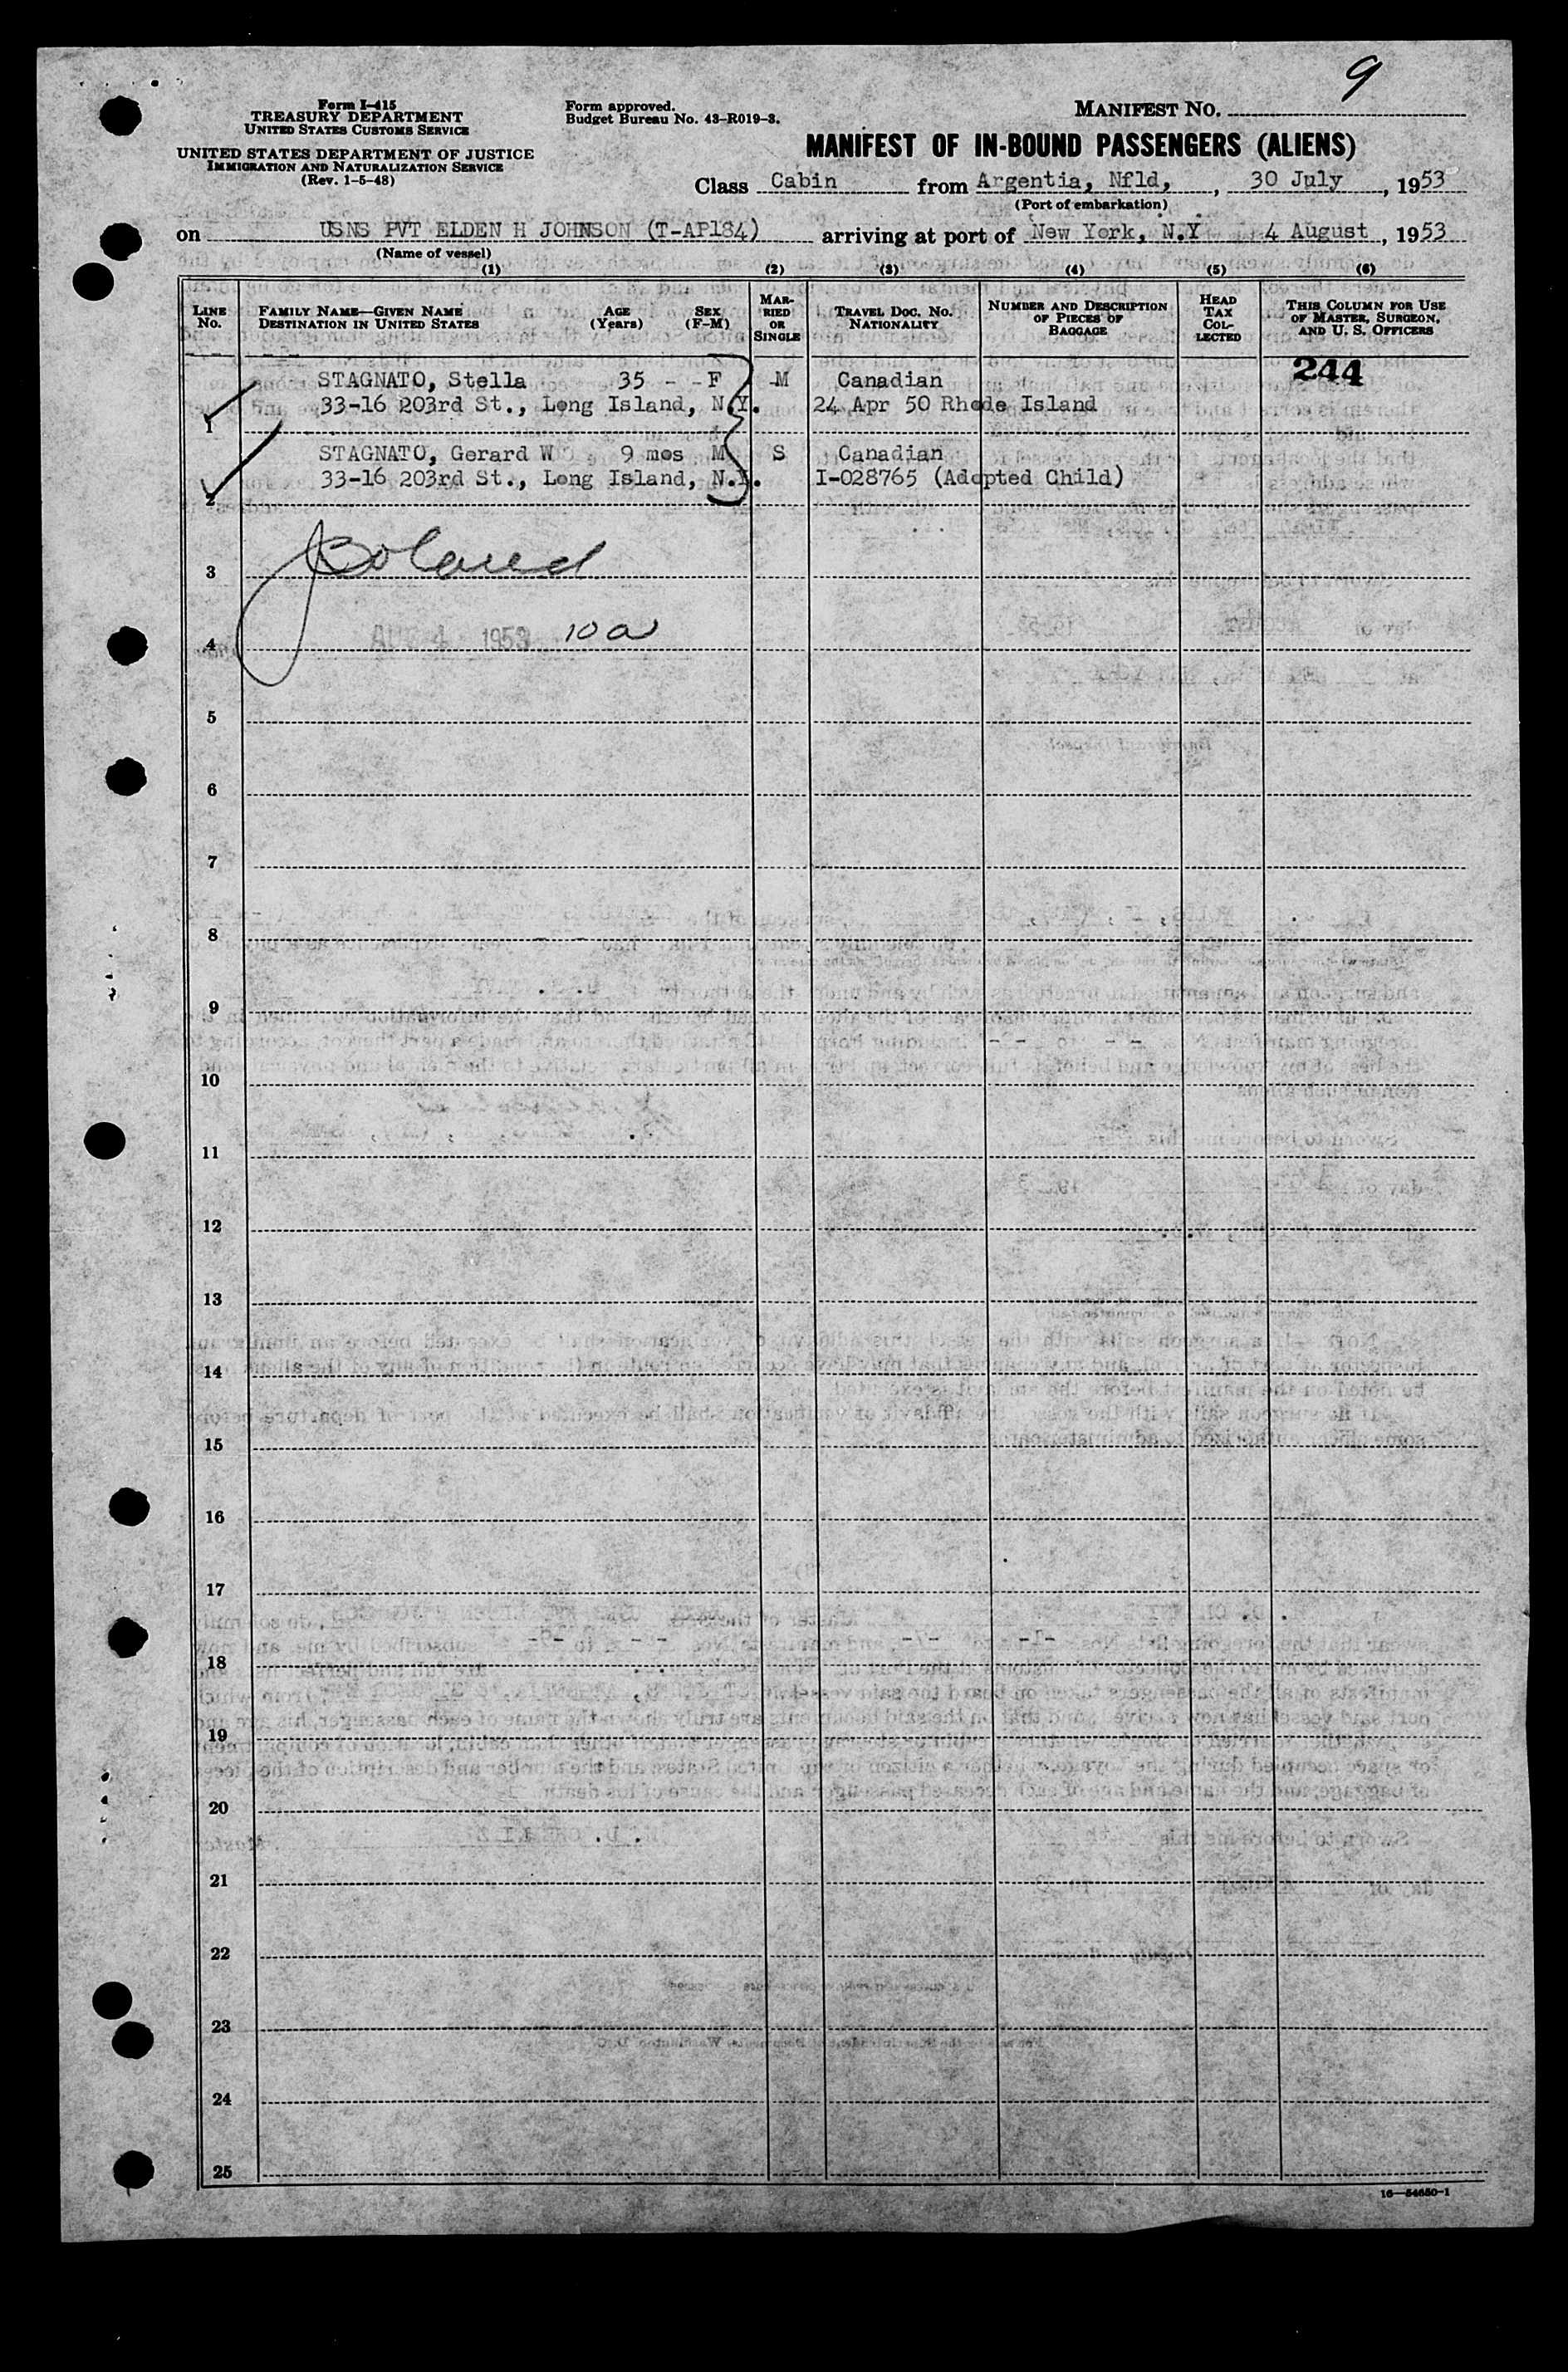 9
Form I-415
TREASURY DEPARTMENT
UNITED STATES CUSTOMS SERVICE
UNITED STATES DEPARTMENT OF JUSTICE
IMMIGRATION AND NATURALIZATION SERVICE
(Rev. 1-5-48)
Form approved.
Budget Bureau No. 43-R019-3.
MANIFEST NO.
MANIFEST OF IN-BOUND PASSENGERS (ALIENS)
Class Cabin from Argentia, Nfld, , 30 July , 1953
(Port of embarkation)
on USNS PVT ELDEN H JOHNSON (T-AP184) arriving at port of New York, N.Y 4 August , 1953
(Name of vessel)
(1) (2) (3) (4) (5) (6)
LINE No.
FAMILY NAME—GIVEN NAME
DESTINATION IN UNITED STATES
AGE (Years)
SEX (F-M)
MARRIED OR SINGLE
TRAVEL DOC. NO. NATIONALITY
NUMBER AND DESCRIPTION OF PIECES OF BAGGAGE
HEAD TAX COLLECTED
THIS COLUMN FOR USE OF MASTER, SURGEON, AND U. S. OFFICERS
244
STAGNATO, Stella 35 - -F M Canadian
33-16 203rd St., Long Island, N.Y. 24 Apr 50 Rhode Island
1
STAGNATO, Gerard W 9 mos M S Canadian
33-16 203rd St., Long Island, N.Y. I-028765 (Adopted Child)
2
3
AUG 4 1953 10 a
4
5
6
7
8
9
10
11
12
13
14
15
16
17
18
19
20
21
22
23
24
25
16—54650-1